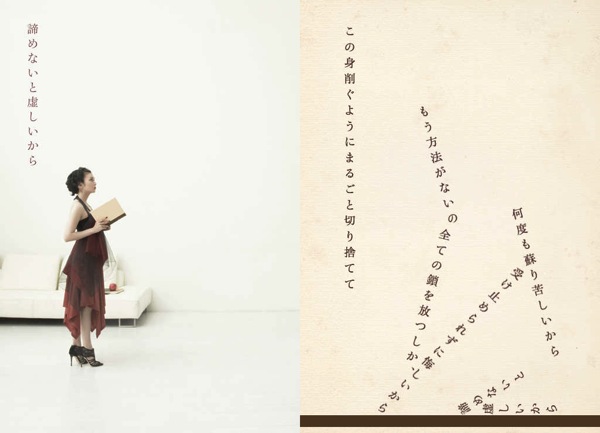 諦めないと虚しいから
この身削ぐようにまるごと切り捨てて
もう方法がないの全ての鎖を放つしか
受け止められずに悔しいから
何度も蘇り苦しいから
諦めないと
虚しいから